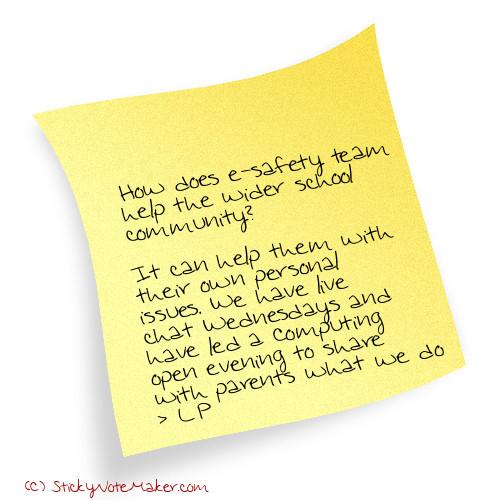 How does e-safety team
help the wider school
community?
It can help them with
their own personal
issues. We have live
chat Wednesdays and
have led a computing
open evening to share
with parents what we do
> LP
(c) StickyNoteMaker.com